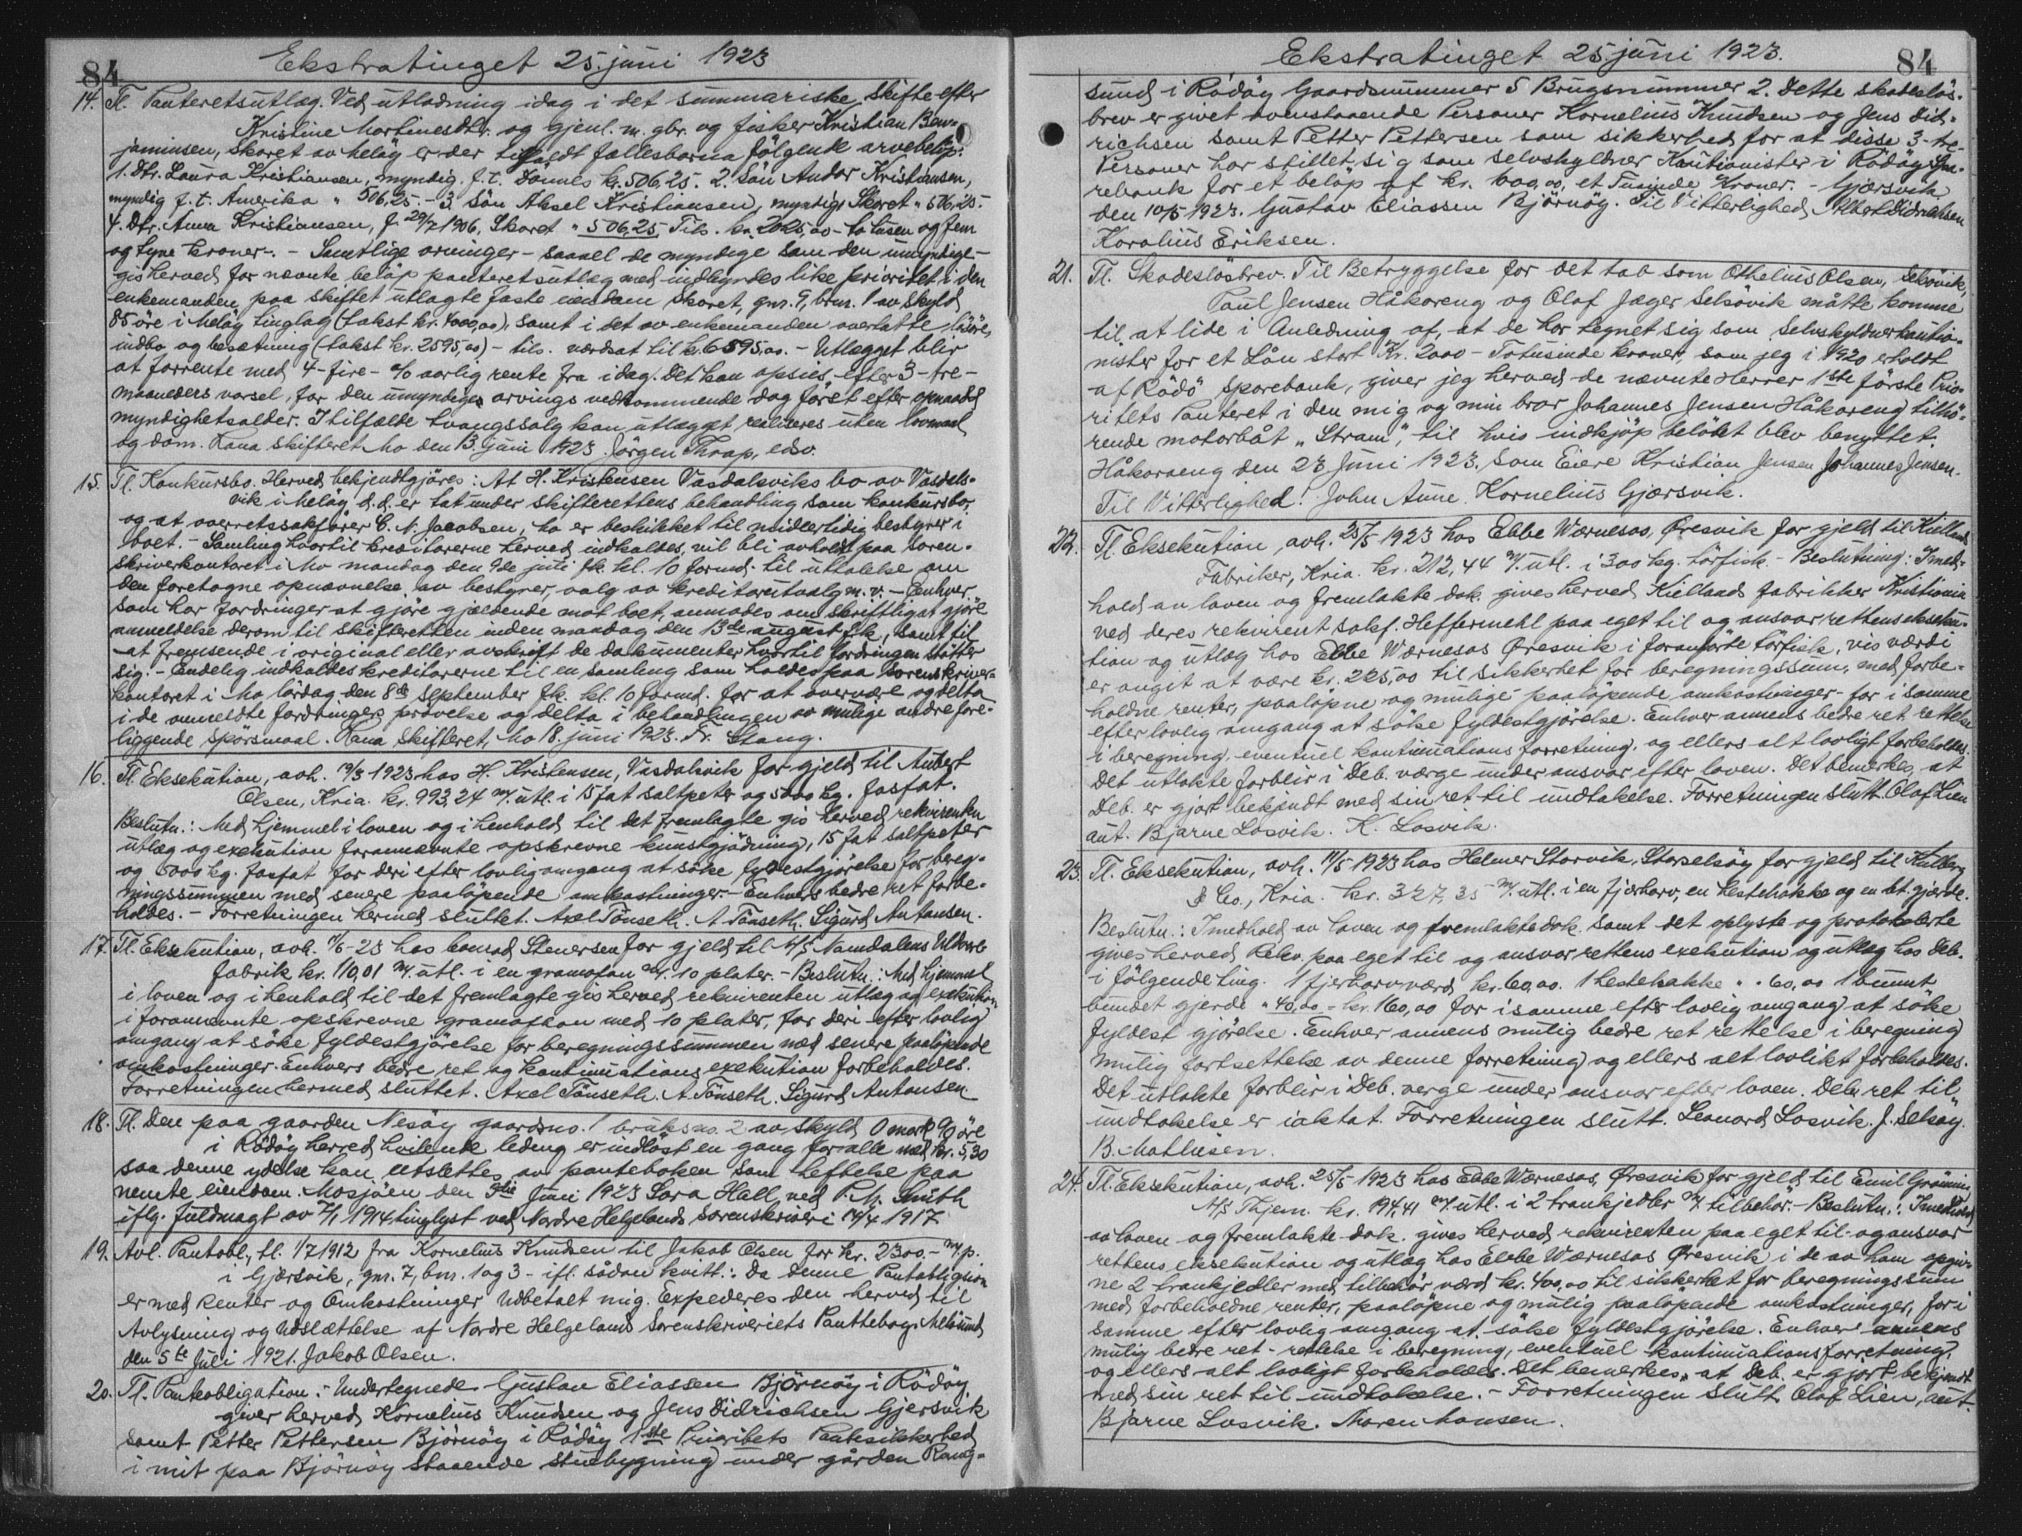 84
Ekstratinget 25. juni 1923
14. Tl. Panteretsutlæg. Ved utlodning idag i det summariske skifte efter
Kristine Martinesdtr. og gjenl. m. gbr. og fisker Kristian Ben-
jaminsen, Skaret av Meløy er der tilfaldt fællesbarna følgende arvebeløp:
1. Dtr. Laura Kristiansen, myndig, f.t. Dønnes kr. 506,25. 2. Søn Andor Kristiansen,
myndig f.t. Amerika " 506,25. - 3. Søn Aksel Kristiansen, myndig, Skaret " 506,25.
4. Dtr. Anna Kristiansen, f. 29/7 1906, Skaret " 506,25. Tils. kr. 2025,00 - to tusen og fem
og tyve kroner. - Samtlige arvinger - saavel de myndige som den umyndige -
gis herved for nævnte beløp panteretsutlæg med indbyrdes like prioritet i den
enkemanden paa skiftet utlagte faste eiendom Skaret, gnr. 9, brnr. 1 av skyld
85 øre i Meløy tinglag (takst kr. 4000,00), samt i det av enkemanden overtatte løsøre,
indbo og besætning (takst kr. 2595,00) - tils. værdsat til kr. 6595,00. - Utlægget blir
at forrente med 4 - fire - % aarlig rente fra idag. Det kan opsies efter 3 - tre -
maaneders varsel, for den umyndiges arvings vedkommende dog først efter opnaadd
myndighetsalder. I tilfælde tvangssalg kan utlægget realiseres uten lovmaal
og dom. Rana skifteret, Mo den 13. juni 1923. Jørgen Thrap, edsv.
15. Tl. Konkursbo. Herved bekjendtgjøres: At H. Kristensen Vasdalsviks bo av Vasdals-
vik i Meløy d.d. er tat under skifterettens behandling som konkursbo,
og at overretssakfører C. N. Jacobsen, Mo er beskikket til midlertidig bestyrer i
boet. - Samling hvortil kreditorerne herved indkaldes, vil bli avholdt paa soren-
skriverkontoret i Mo mandag den 9de juli fk. kl. 10 formd. til uttalelse om
den foretagne opnævnelse av bestyrer, valg av kreditorutvalg m. v. - Enhver
som har fordringer at gjøre gjældende mot boet, anmodes om skriftlig at gjøre
anmeldelse derom til skifteretten inden mandag den 13de august fk., samt til
at fremsende i original eller avskrift de dokumenter hvortil fordringen støtter
sig. - Endelig indkaldes kreditorerne til en samling som holdes paa sorenskriver-
kontoret i Mo lørdag den 8de september fk. kl. 10 formd. for at overvære og delta
i de anmeldte fordringers prøvelse og delta i behandlingen av mulige andre fore-
liggende spørsmaal. Rana skifteret, Mo 18. juni 1923. Fr. Stang.
16. Tl. Eksekution, avh. 19/3 1923 hos H. Kristensen, Vasdalsvik for gjeld til Aubert
Olsen, Kria. kr. 993,24 m/. utl. i 15 fat saltpeter og 5000 kg. fosfat.
Beslutn.: Med hjemmel i loven og i henhold til det fremlagte gis herved rekvirenten
utlæg og exekution i forannævnte opskrevne kunstgjødning, 15 fat saltpeter
og 5000 kg. fosfat for deri efter lovlig omgang at søke fyldestgjørelse for bereg-
ningssummen med senere paaløpende omkostninger. - Enhvers bedre ret forbe-
holdes. - Forretningen hermed sluttet. Axel Tønseth. A. Tønseth. Sigurd Antonsen.
17. Tl. Eksekution, avh. 11/6-23 hos Conrad Stenersen for gjeld til A/S Namdalens Uldvare-
fabrik kr. 110,01 m/. utl. i en gramofon m/. 10 plater. - Beslutn.: Med hjemmel
i loven og i henhold til det fremlagte gis herved rekvirenten utlæg og exekution
i forannævnte opskrevne gramofon med 10 plater, for deri efter lovlig
omgang at søke fyldestgjørelse for beregningssummen med senere paaløpende
omkostninger. Enhvers bedre ret og kontinuations exekution forbeholdes.
Forretningen hermed sluttet. Axel Tønseth. A. Tønseth. Sigurd Antonsen
18. Tl. Den paa gaarden Nesøy gaardsno. 1 bruksno. 2 av skyld 0 mark 90 øre
i Rødøy herred hvilende leding er indløst en gang for alle med kr. 5,30
saa denne ydelse kan utslettes av panteboken som heftelse paa
nevnte eiendom. Mosjøen den 9de Juni 1923 Lars Hall, ved P. M. Smith
iflg. fuldmagt av 7/1 1914 tinglyst ved Nordre Helgelands sorenskriveri 14/4 1917.
19. Avl. Pantobl., tl. 1/7 1912 fra Kornelius Knudsen til Jakob Olsen for kr. 2300.- m/. p.
i Gjersvik, gnr. 7, bnr. 1 og 3 - ifl. sådan kvitt.: Da denne Pantobligation
er med Renter og Omkostninger Udbetalt mig. Expederes den herved til
Avlysning og Udslættelse af Nordre Helgelands Sorenskriveriets Panttebog. Melsund
den 5te Juli 1921. Jakob Olsen.
20. Tl. Panteobligation. - Undertegnede Gustav Eliassen Bjørnøy i Rødøy,
giver herved Kornelius Knudsen og Jens Didrichsen Gjersvik
samt Petter Pettersen Bjørnøy i Rødøy 1ste Prioritets Pantesikkerhed
i mit paa Bjørnøy staaende stuebygning under gården Rang-
Ekstratinget 25 juni 1923.
84
sund i Rødøy Gaardsnummer 5 Brugsnummer 2. Dette skadesløs-
brev er givet ovenstaaende Personer Kornelius Knudsen og Jens Did-
richsen samt Petter Pettersen som sikkerhed for at disse 3 - tre -
Personer har stillet sig som selvskyldner Kautionister i Rødøy Spa-
rebank for et beløp af kr. 1000,00, et Tusinde Kroner. - Gjærsvik
den 10/5 1923. Gustav Eliassen Bjørnøy. Til Vitterlighed Albert Didrichsen
Karolius Eriksen.
21. Tl. Skadesløsbrev. Til Betryggelse for det tab som Othelius Olsen, Selsøvik,
Paul Jensen Håkoreng og Olof Jæger Selsøvik måtte komme
til at lide i Anledning af, at de har tegnet sig som Selvskyldnerkautio-
nister for et Lån stort Kr. 2000 - Totusinde kroner, som jeg i 1920 erholdt
af Rødø Sparebank, giver jeg herved de nævnte Herrer 1ste første Prio-
ritets Panteret i den mig og min bror Johannes Jensen Håkoreng tilhø-
rende motorbåt "Stram", til hvis indkjøp beløbet blev benyttet.
Håkoraeng den 23 Juni 1923. Som Eiere Kristian Jensen Johannes Jensen.
Til Vitterlighed: John Aune. Kornelius Gjærsvik.
22. Tl. Eksekution, avh. 25/5 1923 hos Ebbe Wærnesos, Øresvik for gjeld til Kiellands
Fabriker, Kria. kr. 212,44 m/. utl. i 300 kg. tørfisk. - Beslutning: I med-
hold av loven og fremlakte dok. gives herved Kiellands fabrikker Kristiania
ved deres rekvirent sakf. Heffermehl paa eget til og ansvar rettens eksekun-
tion og utlæg hos Ebbe Wærnesos Øresvik i foranførte tørfisk, vis værdi
er anget at være kr. 225,00 til sikkerhet for beregningssum, med forbe-
holdne renter, paaløpne og mulige paaløpende omkostninger - for i samme
efter lovlig omgang at søke fyldestgjørelse. Enhver annens bedre ret, rettelse
i beregning, eventuel kontinuations forretning, og ellers alt lovligt forbeholdes.
Det utlakte forblir i Deb. værge under ansvar efter loven. Det bemerkes, at
Deb. er gjort bekjendt med sin ret til undtakelse. Forretningen slutt. Olaf Lien
aut. Bjarne Losvik. K. Losvik.
23. Tl. Eksekution, avh. 11/5 1923 hos Helmer Storvik, Storselsøy for gjeld til Kulberg
& Co., Kria. kr. 327,35 m/. utl. i en fjærharv, en hestehakke og en bt. gjærde.
Beslutn.: I medhold av loven og fremlakte dok. samt det oplyste og protokolerte
gives herved Rekv. paa eget til og ansvar rettens exekution og utlæg hos Deb.
i følgende ting. 1 fjerharv værd kr. 60,00. 1 hestehakke " - 60,00 1 bunt
bundet gjerde " 40,00 - kr. 160,00 for i samme efter lovlig omgang at søke
fyldest gjørelse. Enhver annens mulig bedre ret rettelse i beregning
mulig fortsettelse av denne forretning og ellers alt lovlikt forbeholdes.
Det utlakte forblir i Deb. verge under ansvar efter loven. Deb. ret til
undtakelse er iaktat. Forretningen slutt. Leonard Losvik. J. Selsøy.
B. Mathisen.
24. Tl. Eksekution, avh. 25/5 1923 hos Ebbe Wærnesos, Øresvik for gjeld til Emil
A/S Thjem. kr. 194,41 m/. utl. i 2 trankjedler m/. tilbehør. - Beslutn.: I medhold
av loven og fremlakte dok. gives herved rekvirenten paa eget til og ansvar
rettens eksekution og utlæg hos Ebbe Wærnesos Øresvik i de av ham opgiv-
ne 2 trankjedler med tilbehør, værd kr. 400,00 til sikkerhet for beregningssum
med forbeholdne renter, paaløpne og mulig paaløpende omkostninger, for i
samme efter lovlig omgang at søke fyldestgjørelse. Enhver annens
mulig bedre ret - rettelse i beregning, eventuel kontinuationsforretning,
og ellers alt lovligt forbeholdes. Det bemerkes, at Deb. er gjort bekjendt
med sin ret til undtakelse. - Forretningen slutt. Olaf Lien, aut.
Bjarne Losvik. Maren Hansen.